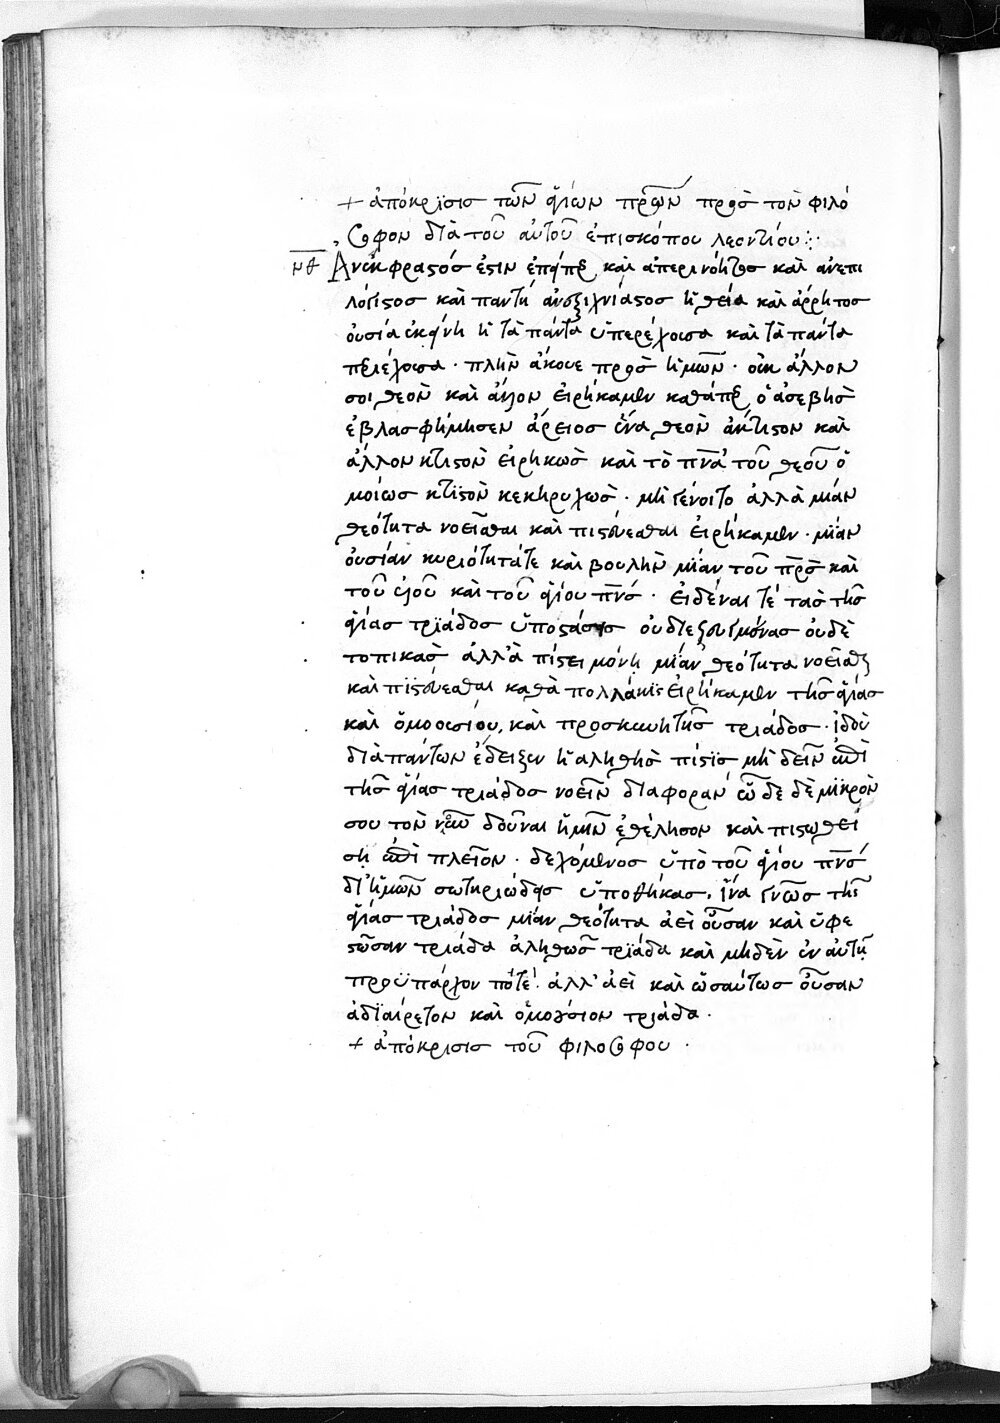 + ἀπόκρϊσισ τῶν ἁγίων πρ̅ων πρὸσ τὸν φιλό
σοφον διὰ τοῦ αὐτοῦ ἐπισκόπου λεοντίου :
ν̅θ Ἀνέκφραστόσ ἐστιν ἐπείπερ καὶ ἀπερινόητοσ καὶ ἀνεπι
λόγιστοσ καὶ παντὶ ἀνεξιχνίαστοσ ἡ θεία καὶ ἄρρητοσ
οὐσία ἐκείνη ἡ τὰ πάντα ὑπερέχουσα καὶ τὰ πάντα
περιέχουσα · πλὴν ἄκουε πρὸσ ἡμῶν · οὐκ ἄλλον
σοι θεὸν καὶ ἄλλον εἰρήκαμεν καθάπερ ὁ ἀσεβὴσ
ἐβλασφήμησεν ἄρειοσ ἕνα θεὸν ἄκτιστον καὶ
ἄλλον κτιστὸν εἰρηκὼσ καὶ τὸ πν̅α τοῦ θεοῦ ὁ
μοίωσ κτϊστὸν κεκηρυχὼσ · μὴ γένοιτο ἀλλὰ μίαν
θεότητα νοεῖσθαι καὶ πιστεύεσθαι εἰρήκαμεν · μΐαν
οὐσίαν κυριότητά τε καὶ βουλὴν μΐαν τοῦ πρ̅σ καὶ
τοῦ υἱοῦ καὶ τοῦ ἁγίου πν̅σ · εἰδέναι τέ τασ τῆσ
ἁγίασ τρϊάδοσ ὑποστάσεισ οὐ διεζευγμένασ οὐδὲ
τοπικασ ἀλλὰ πίστει μόνη μΐαν θεότητα νοεῖσθαι
καὶ πϊστεύεσθαι καθὰ πολλάκϊσ εἰρήκαμεν τῆσ ἁγίασ
καὶ ὁμοουσίου, καὶ προσκυνητῆσ τριάδοσ · ἰδοὺ
διὰ πάντων ἔδειξεν ἡ ἀληθὴσ πίστϊσ μὴ δεῖν ἐπὶ
τῆσ ἁγίασ τριάδοσ νοεῖν διαφοράν ὧδε δὲ μϊκρὸν
σου τὸν νοῦν δοῦναι ἡμῖν ἐθέλησον καὶ πιστωθεί
ση ἐπὶ πλεῖον · δεχόμενοσ ὑπὸ τοῦ ἁγίου πν̅σ
δι' ἡμῶν σωτηριώδεισ ὑποθήκασ, ἵνα γνῶσ τῆσ
ἁγίασ τριάδοσ μΐαν θεότητα ἀεὶ οὖσαν καὶ ὑφε
στῶσαν τριάδα ἀληθῶσ τρϊάδα καὶ μηδὲν ἐν αὐτῇ
προϋπάρχον πότέ · ἀλλ' ἀεὶ καὶ ὡσαύτωσ οὖσαν
ἀδϊαίρετον καὶ ὁμοούσιον τριάδα ·
+ ἀπόκρισισ τοῦ φιλοσόφου ·